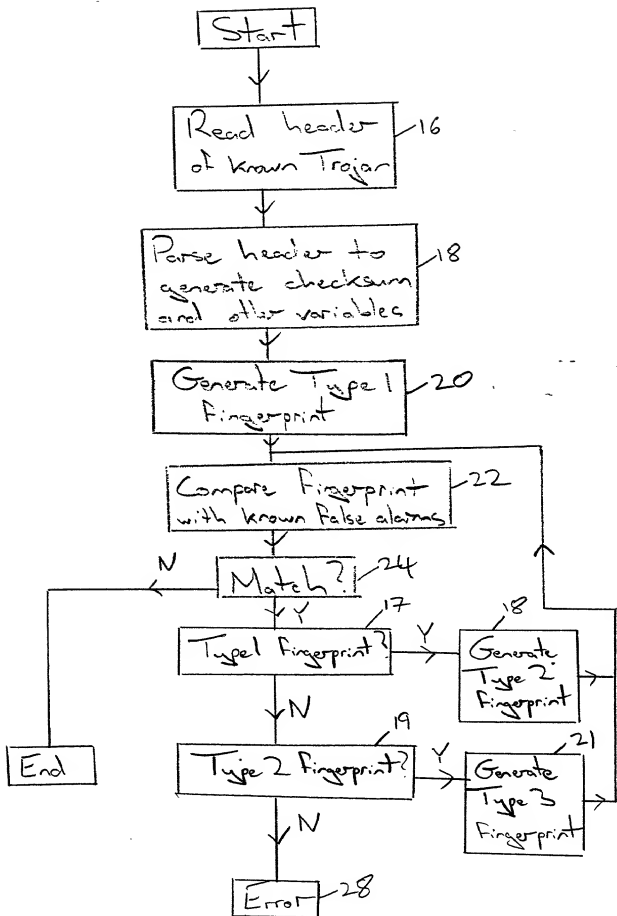 Start
Read header
of known Trojan
16
Parse header to
generate checksum
and other variables
18
Generate Type 1
Fingerprint
20
Compare Fingerprint
with known False alarms
22
N
Match?
24
Y
17
Type 1 Fingerprint?
Y
18
Generate
Type 2
Fingerprint
N
19
End
Type 2 Fingerprint?
Y
21
Generate
Type 3
Fingerprint
N
Error
28